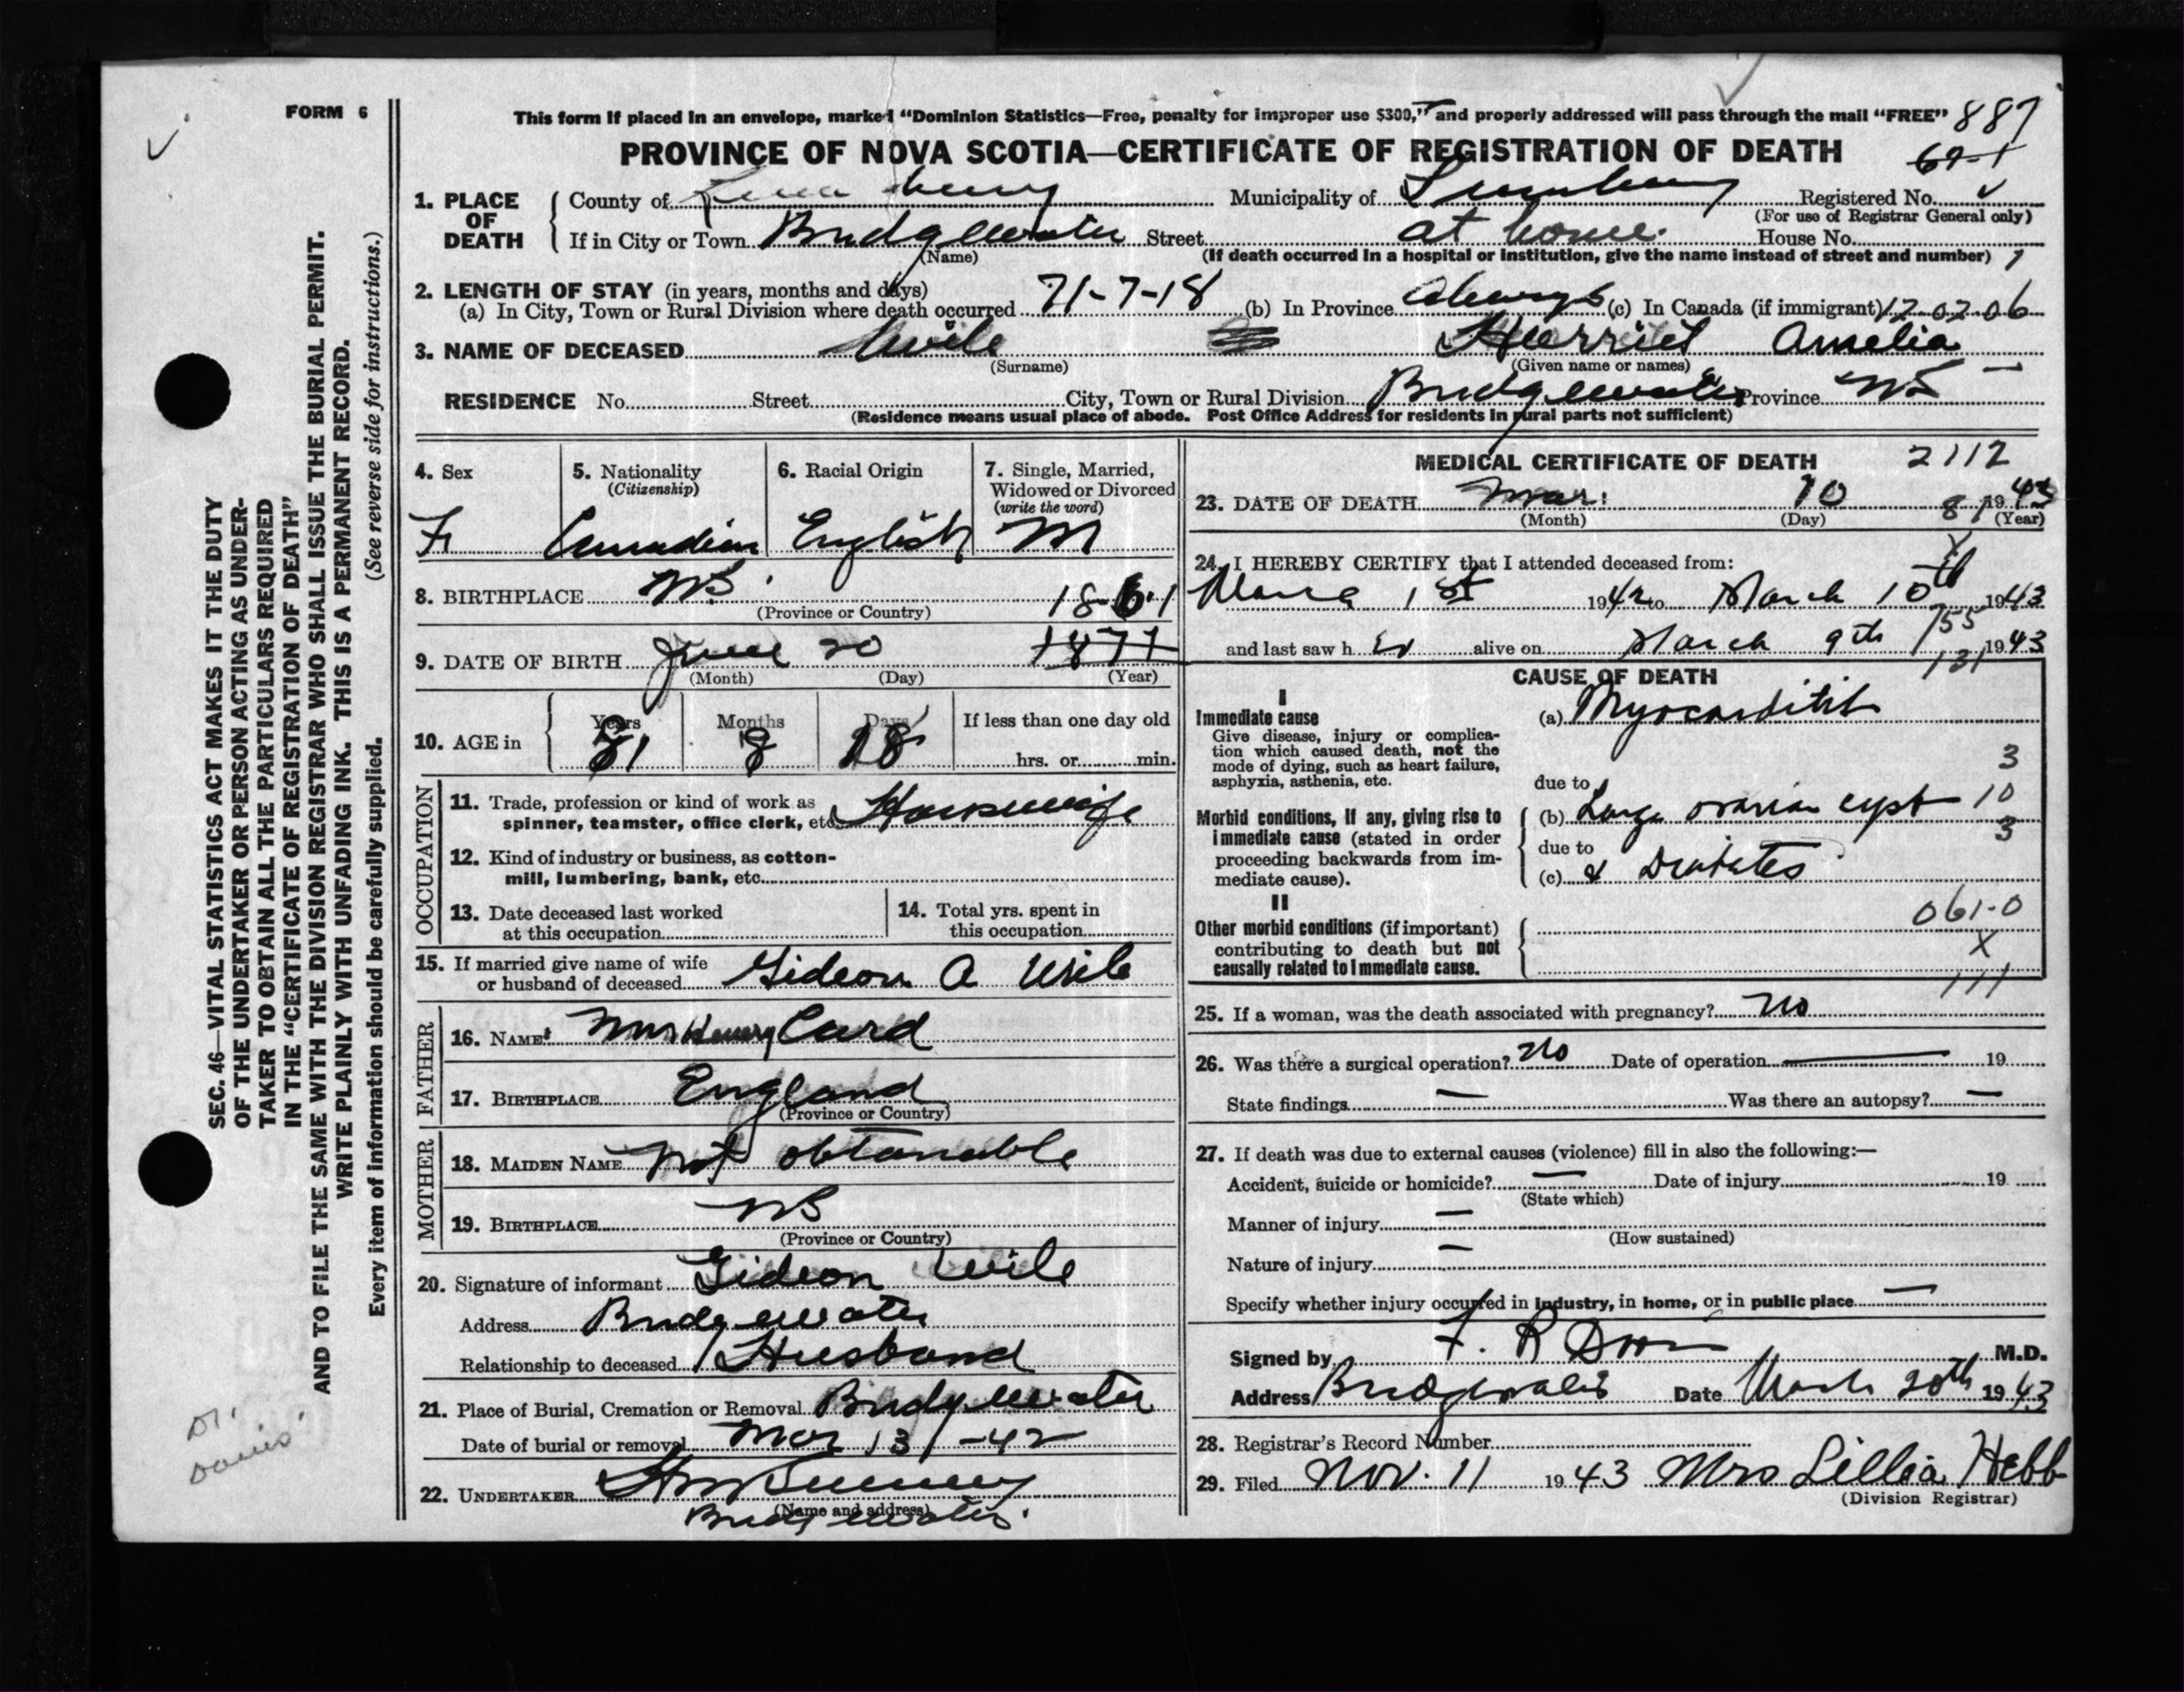 FORM 6
This form if placed in an envelope, marked "Dominion Statistics—Free, penalty for improper use $300," and properly addressed will pass through the mail "FREE" 887
PROVINCE OF NOVA SCOTIA—CERTIFICATE OF REGISTRATION OF DEATH
69-1
1. PLACE OF DEATH
County of Lunenburg Municipality of Lunenburg Registered No.
(For use of Registrar General only)
If in City or Town Bridgewater Street at home. House No.
(Name) (If death occurred in a hospital or institution, give the name instead of street and number) 1
2. LENGTH OF STAY (in years, months and days)
(a) In City, Town or Rural Division where death occurred 71-7-18 (b) In Province Always (c) In Canada (if immigrant) 12.02.06
3. NAME OF DECEASED Wile Harriet Amelia
(Surname) (Given name or names)
RESIDENCE No. Street City, Town or Rural Division Bridgewater Province NS
(Residence means usual place of abode. Post Office Address for residents in rural parts not sufficient)
4. Sex F
5. Nationality (Citizenship) Canadian
6. Racial Origin English
7. Single, Married, Widowed or Divorced (write the word) M
8. BIRTHPLACE NS
(Province or Country)
1861
9. DATE OF BIRTH June 20 1871
(Month) (Day) (Year)
10. AGE in Years 81 Months 8 Days 18 If less than one day old hrs. or min.
OCCUPATION
11. Trade, profession or kind of work as spinner, teamster, office clerk, etc. Housewife
12. Kind of industry or business, as cotton-mill, lumbering, bank, etc.
13. Date deceased last worked at this occupation
14. Total yrs. spent in this occupation
15. If married give name of wife or husband of deceased Gideon A Wile
FATHER
16. NAME Henry Card
17. BIRTHPLACE England
(Province or Country)
MOTHER
18. MAIDEN NAME Not obtainable
19. BIRTHPLACE NS
(Province or Country)
20. Signature of informant Gideon Wile
Address Bridgewater
Relationship to deceased Husband
21. Place of Burial, Cremation or Removal Bridgewater
Date of burial or removal Mar 13 -42
22. UNDERTAKER
(Name and address)
Bridgewater
MEDICAL CERTIFICATE OF DEATH 2112
23. DATE OF DEATH Mar. 10 1943
(Month) (Day) (Year)
24. I HEREBY CERTIFY that I attended deceased from:
1st 1942 to March 10th 1943
and last saw h er alive on March 9th 1943
CAUSE OF DEATH
I
Immediate cause
Give disease, injury or complication which caused death, not the mode of dying, such as heart failure, asphyxia, asthenia, etc.
(a) Myocarditis
3
due to
Morbid conditions, if any, giving rise to immediate cause (stated in order proceeding backwards from immediate cause).
(b) Large ovarian cyst 10
3
due to
(c) & Diabetes
II
061-0
Other morbid conditions (if important) contributing to death but not causally related to immediate cause.
X
111
25. If a woman, was the death associated with pregnancy? No
26. Was there a surgical operation? No Date of operation — 19
State findings — Was there an autopsy? —
27. If death was due to external causes (violence) fill in also the following:—
Accident, suicide or homicide? — Date of injury 19
(State which)
Manner of injury —
(How sustained)
Nature of injury —
Specify whether injury occurred in industry, in home, or in public place —
Signed by F. R. M.D.
Address Bridgewater Date March 20th 1943
28. Registrar's Record Number
29. Filed Nov. 11 1943 Mrs Lillia Hebb
(Division Registrar)
SEC. 46—VITAL STATISTICS ACT MAKES IT THE DUTY
OF THE UNDERTAKER OR PERSON ACTING AS UNDER-
TAKER TO OBTAIN ALL THE PARTICULARS REQUIRED
IN THE "CERTIFICATE OF REGISTRATION OF DEATH"
AND TO FILE THE SAME WITH THE DIVISION REGISTRAR WHO SHALL ISSUE THE BURIAL PERMIT.
WRITE PLAINLY WITH UNFADING INK. THIS IS A PERMANENT RECORD.
Every item of information should be carefully supplied. (See reverse side for instructions.)
Dr. Davis